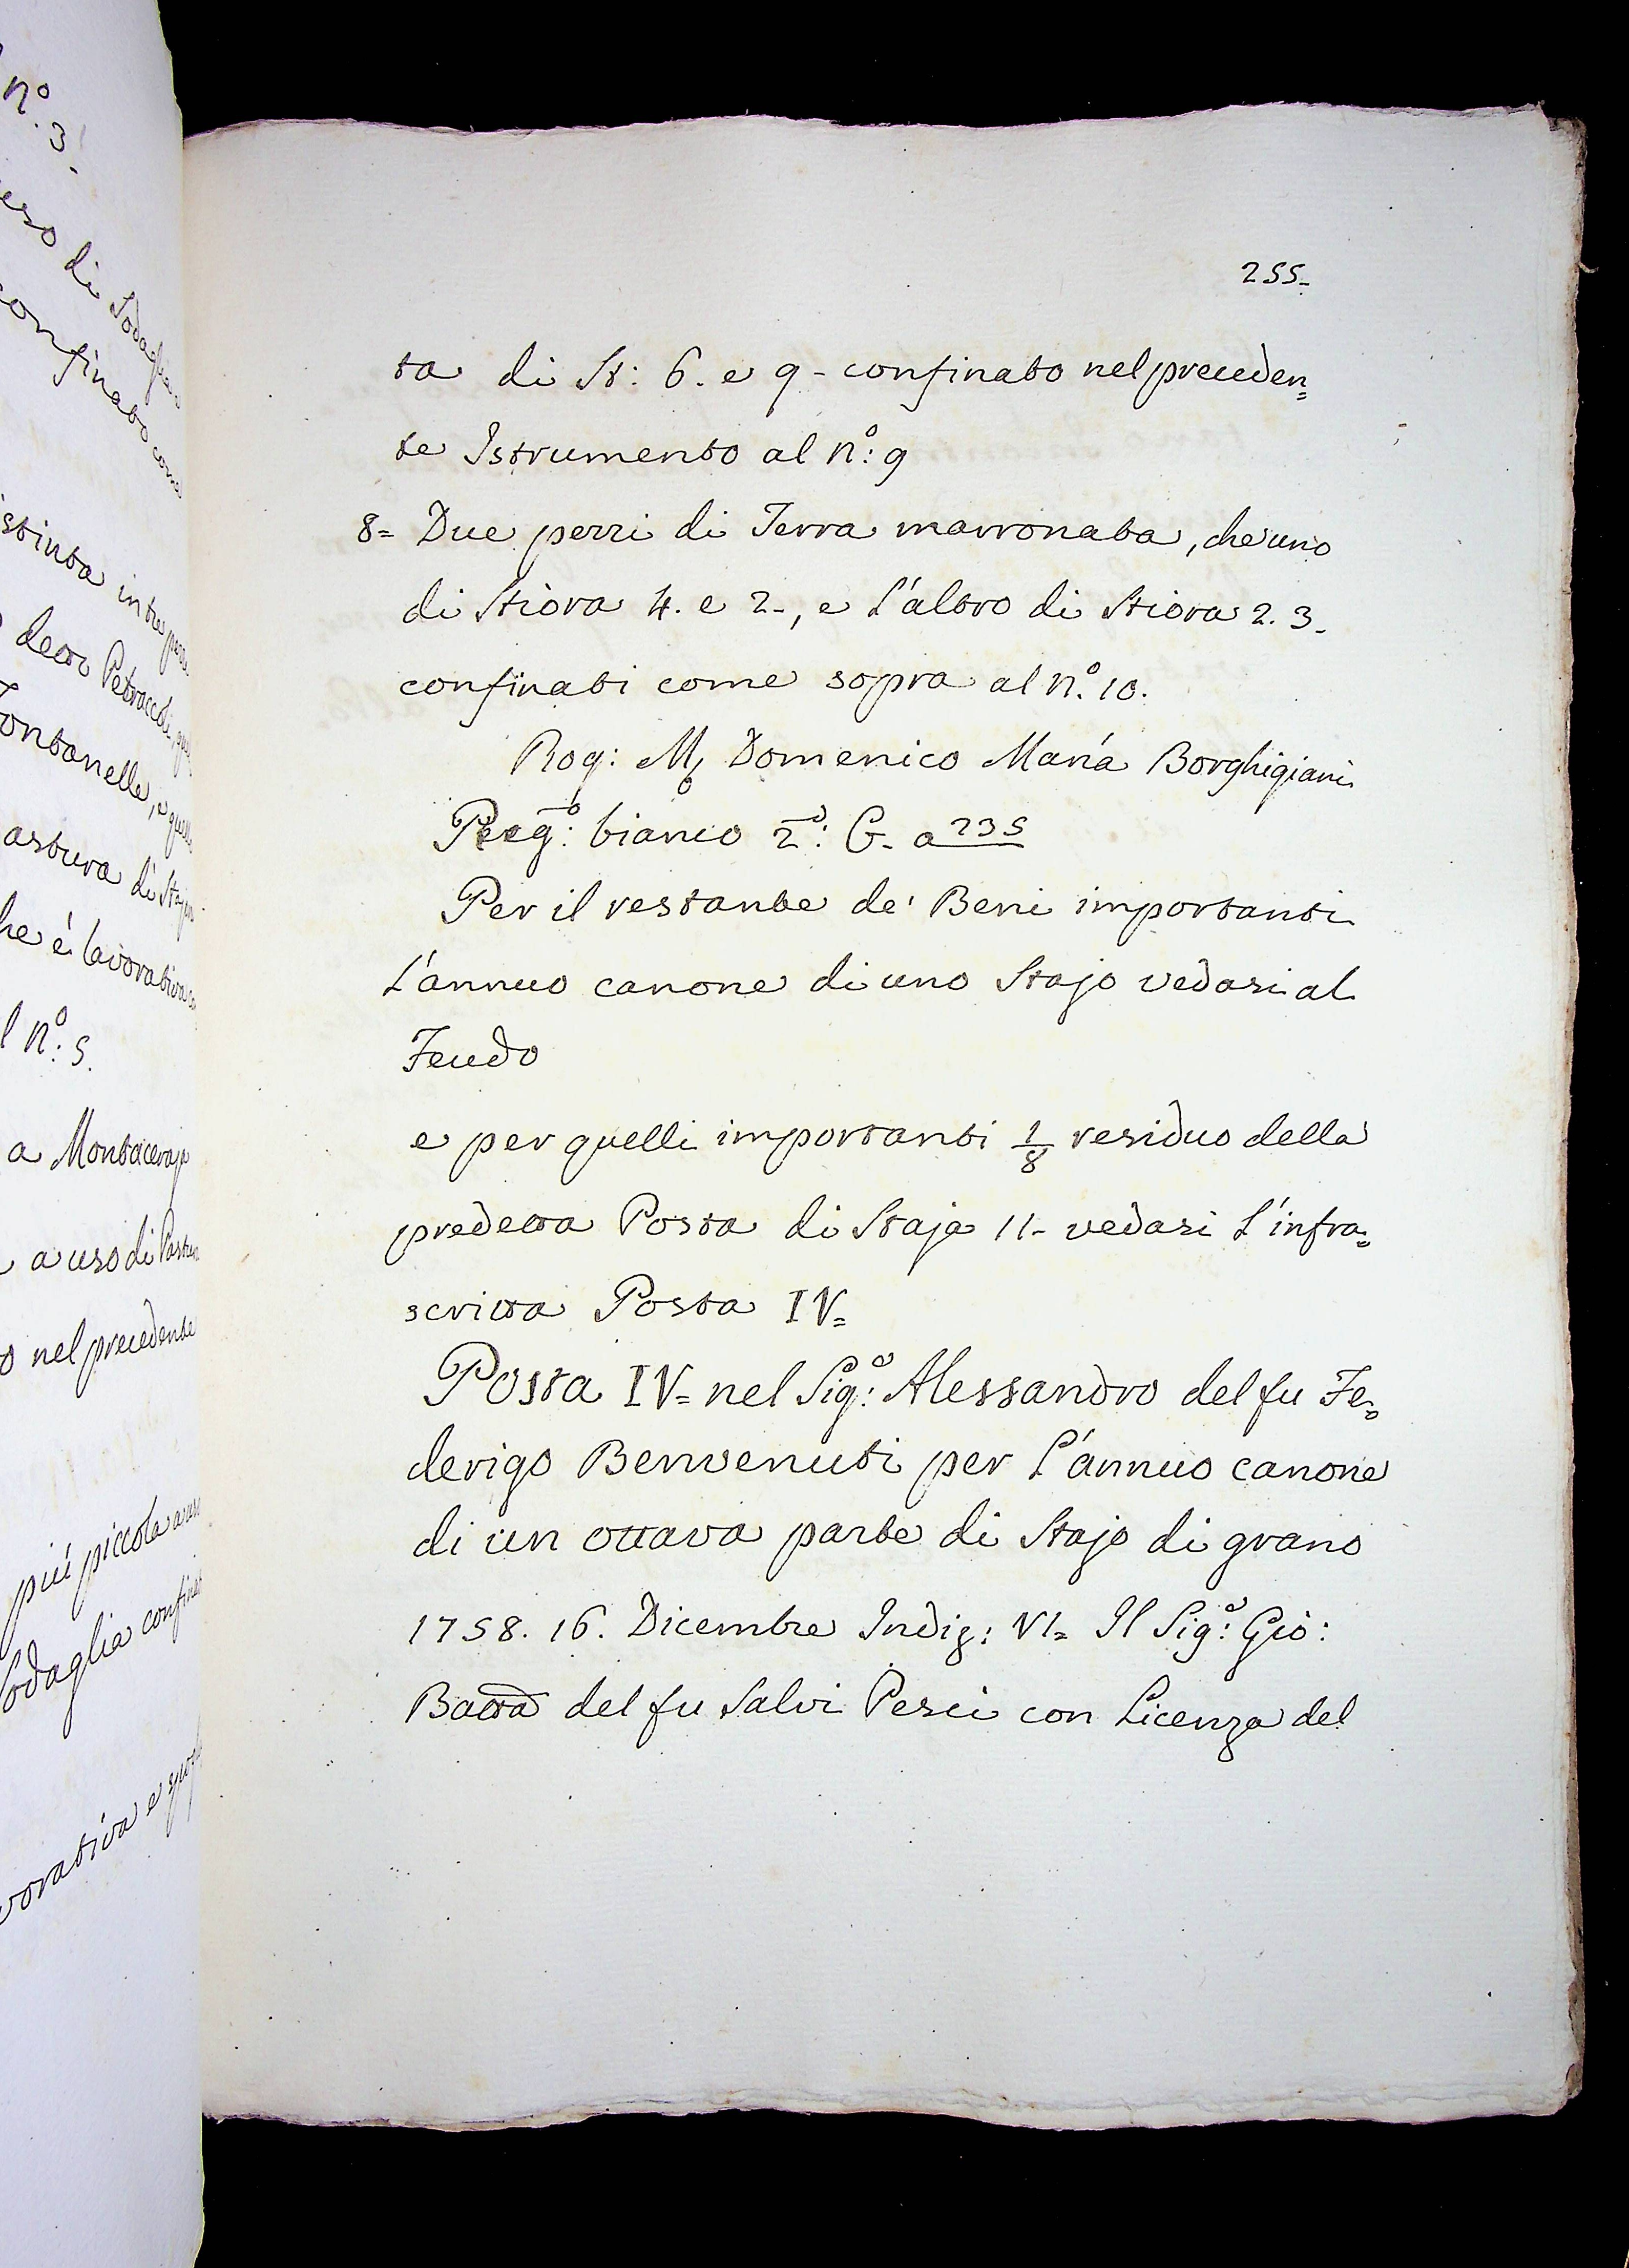 nº. 3.
uso di Sodaglia
confinato come
stinta in tre pezzi
detto Petraccoli, que
Fontanelle, e quello
astura di Staja
he è lavorativa
l nº: 5.
a Montaceraja
a uso di Pastura
o nel precedente
più piccola a uso
Sodaglia confinat
vorativa e
255-
ta di St: 6. e 9- confinato nel preceden=
te Istrumento al nº: 9
8= Due pezzi di Terra marronata, che uno
di Stiora 4. e 2-, e l'altro di Stiora 2. 3-
confinati come sopra al nº. 10.
Rog: Mº Domenico Maria Borghigiani
Regº: bianco 2º: G- a 235
Per il restante de' Beni importanti
l'annuo canone di uno Stajo vedasi al
Feudo
e per quelli importanti 1/8 residuo della
predetta Posta di Staja 11- vedasi l'infra=
scritta Posta IV=
Posta IV= nel Sigº: Alessandro del fu Fe=
derigo Benvenuti per l'annuo canone
di un ottava parte di Stajo di grano
1758. 16. Dicembre Indiz: VI= Il Sigº: Gio:
Batta del fu Salvi Pesci con Licenza del